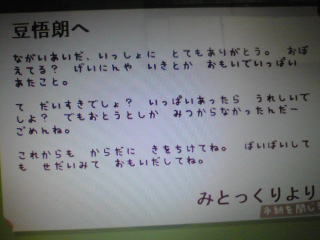 豆悟朗へ
ながいあいだ、いっしょに とてもありがとう。 おぼ
えてる？ げいにんや いきとか おもいでいっぱい
あたこと。
て だいすきでしょ？ いっぱいあったら うれしいで
しょ？ でもおとうとしか みつからなかったんだー
ごめんね。
これからも からだに きをちけてね。 ばいばいして
も せだいみて おもいだしてね。
みとっくりより
手紙を閉じ